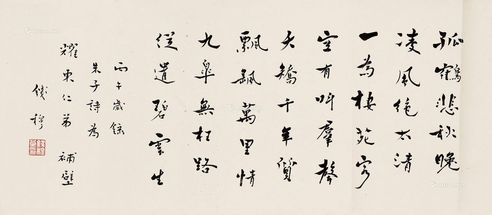 孤鶴悲秋晚
凌風絕太清
一為棲苑客
空有叫羣聲
夭矯千年質
飄颻萬里情
九皋無枉路
從遣碧雲生
丙午歲錄
朱子詩為
耀東仁弟 補壁
錢穆